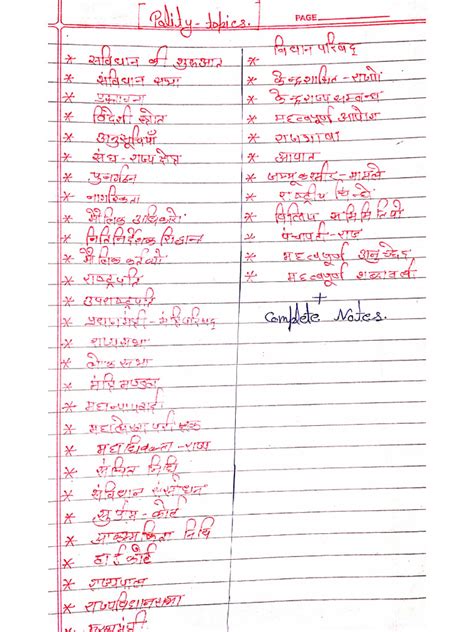 [Polity-topics.]
PAGE
* संविधान की शुरुआत
* संविधान सभा
* प्रस्तावना
* विदेशी स्रोत
* अनुसूचियाँ
* संघ-राज्य क्षेत्र
* पुनर्गठन
* नागरिकता
* मौलिक अधिकारों
* नितिनिर्देशक सिद्धान्त
* मौलिक कर्तव्यों
* राष्ट्रपति
* उपराष्ट्रपति
* प्रधानमंत्री-मंत्रिपरिषद्
* राज्यसभा
* लोकसभा
* मंत्रिमण्डल
* महान्यायवादी
* महालेखा परीक्षक
* महाधिवक्ता-राज्य
* संचित निधि
* संविधान संसोधन
* सुप्रीम-कोर्ट
* आकस्मिकता निधि
* हाईकोर्ट
* राज्यपाल
* राज्यविधानसभा
* मुख्यमंत्री
विधान परिषद्
* केन्द्रशासित-राज्यों
* केन्द्र राज्य सम्बन्ध
* महत्वपूर्ण आयोग
* राजभाषा
* आपात
* जम्मू कश्मीर-मामले
* राष्ट्रीय चिन्हों
* विभिन्न समितियों
* पंचायती-राज
* महत्वपूर्ण अनुच्छेद
* महत्वपूर्ण शब्दावली
+
Complete Notes.